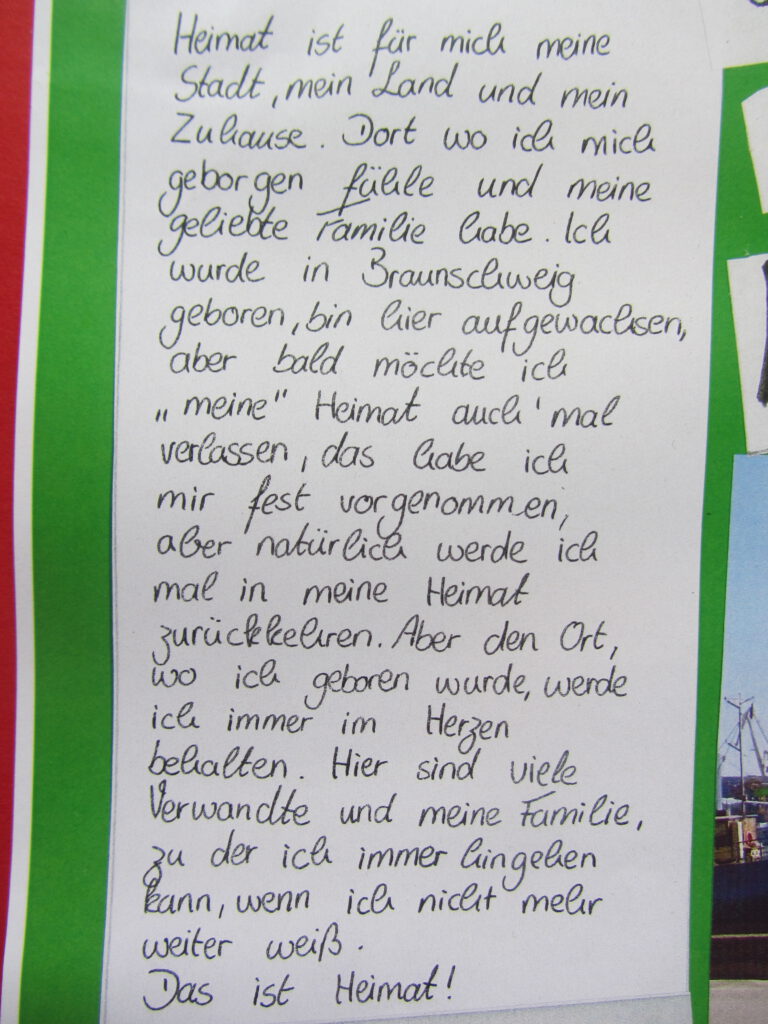 Heimat ist für mich meine
Stadt, mein Land und mein
Zuhause. Dort wo ich mich
geborgen fühle und meine
geliebte Familie habe. Ich
wurde in Braunschweig
geboren, bin hier aufgewachsen,
aber bald möchte ich
„meine" Heimat auch 'mal
verlassen, das habe ich
mir fest vorgenommen,
aber natürlich werde ich
mal in meine Heimat
zurückkehren. Aber den Ort,
wo ich geboren wurde, werde
ich immer im Herzen
behalten. Hier sind viele
Verwandte und meine Familie,
zu der ich immer hingehen
kann, wenn ich nicht mehr
weiter weiß.
Das ist Heimat!